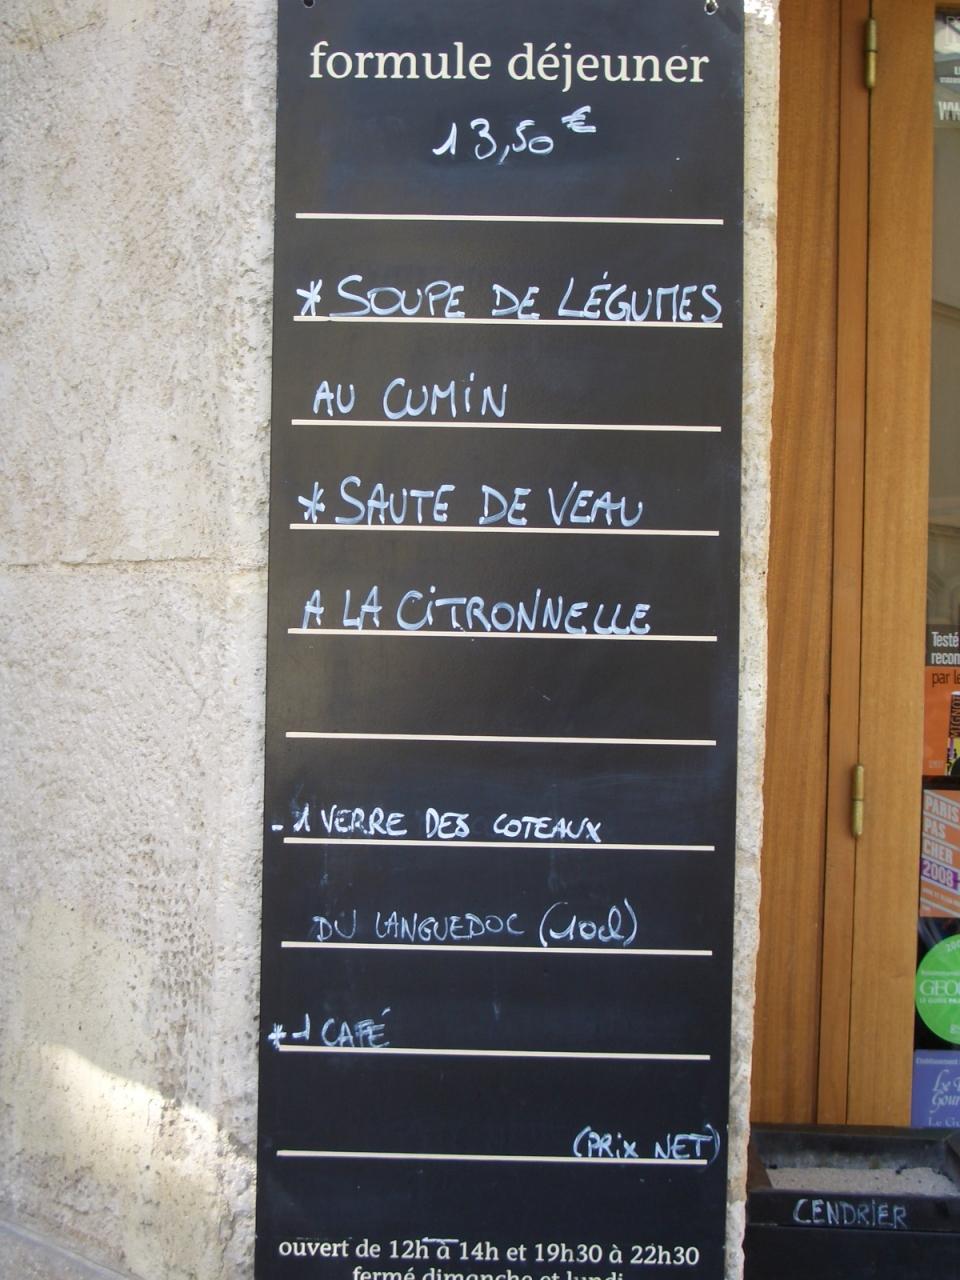 formule déjeuner
13,50€
* SOUPE DE LÉGUMES
AU CUMIN
* SAUTE DE VEAU
A LA CITRONNELLE
- 1 VERRE DES COTEAUX
DU LANGUEDOC (10cl)
* 1 CAFÉ
(PRIX NET)
ouvert de 12h à 14h et 19h30 à 22h30
fermé dimanche et lundi
Testé
par le
PARIS
PAS
CHER
2008
GEO
CENDRIER